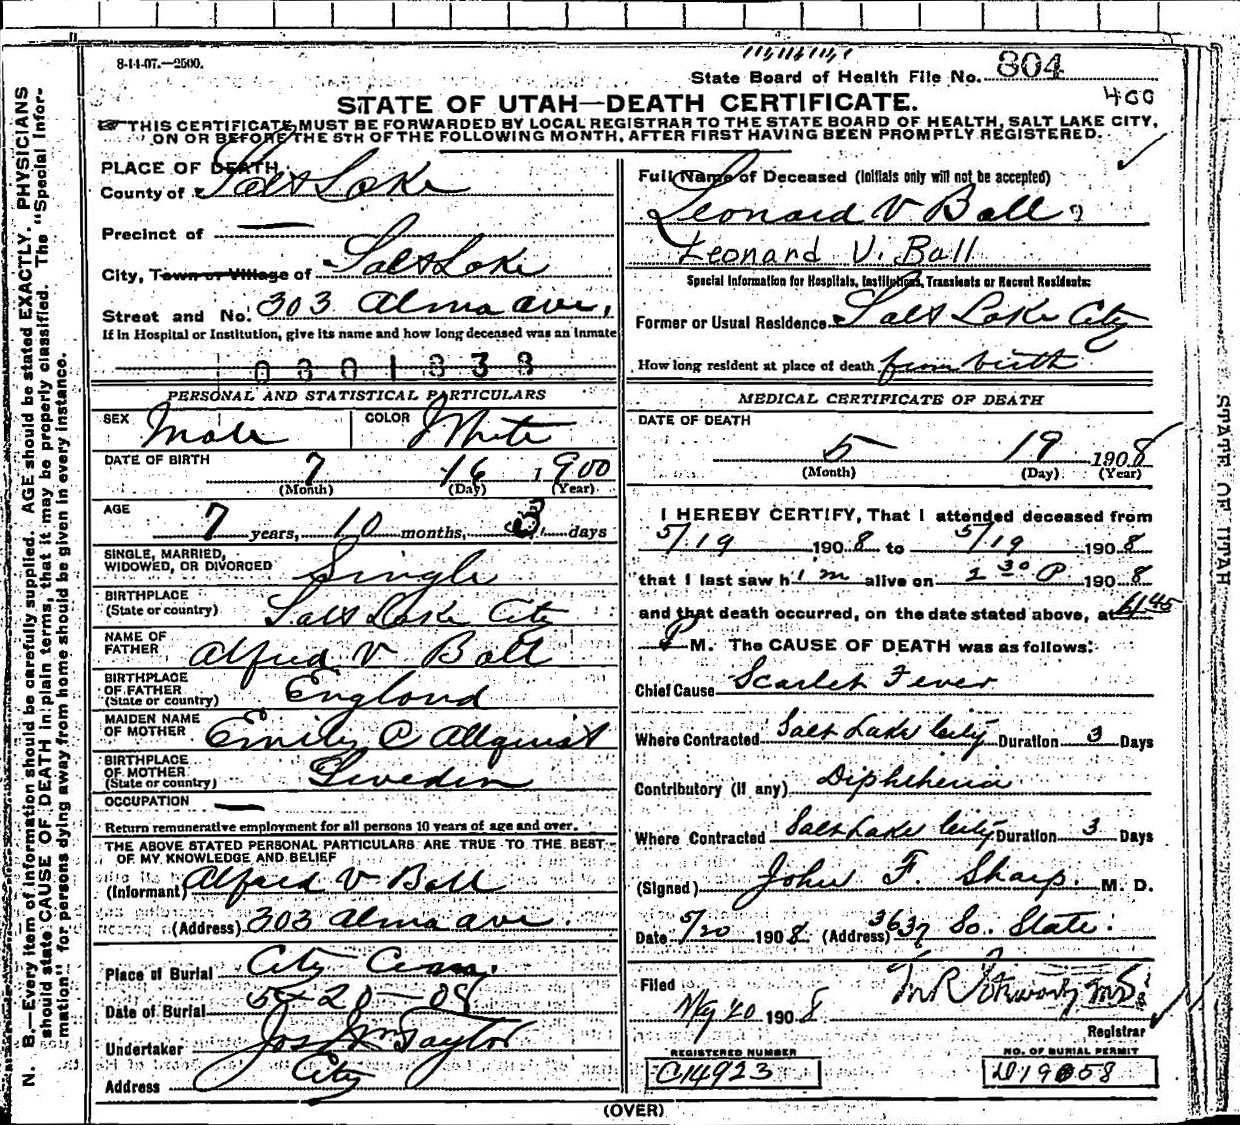 8-14-07.—2500.
State Board of Health File No. 804
400
STATE OF UTAH—DEATH CERTIFICATE.
THIS CERTIFICATE MUST BE FORWARDED BY LOCAL REGISTRAR TO THE STATE BOARD OF HEALTH, SALT LAKE CITY,
ON OR BEFORE THE 5TH OF THE FOLLOWING MONTH, AFTER FIRST HAVING BEEN PROMPTLY REGISTERED.
PLACE OF DEATH
County of Salt Lake
Precinct of —
City, Town or Village of Salt Lake
Street and No. 303 Alma Ave,
If in Hospital or Institution, give its name and how long deceased was an inmate
0301838
PERSONAL AND STATISTICAL PARTICULARS
SEX Male COLOR White
DATE OF BIRTH 7 16 1900
(Month) (Day) (Year)
AGE 7 years, 10 months, 3 days
SINGLE, MARRIED,
WIDOWED, OR DIVORCED Single
BIRTHPLACE
(State or country) Salt Lake City
NAME OF
FATHER Alfred V Ball
BIRTHPLACE
OF FATHER
(State or country) England
MAIDEN NAME
OF MOTHER Emily C Allquist
BIRTHPLACE
OF MOTHER
(State or country) Sweden
OCCUPATION —
Return remunerative employment for all persons 10 years of age and over.
THE ABOVE STATED PERSONAL PARTICULARS ARE TRUE TO THE BEST
OF MY KNOWLEDGE AND BELIEF
(Informant) Alfred V Ball
(Address) 303 Alma Ave.
Place of Burial City Cem.
Date of Burial 5-20-08
Undertaker Jos Wm Taylor
Address City
Full Name of Deceased (Initials only will not be accepted)
Leonard V Ball
Leonard V. Ball
Special Information for Hospitals, Institutions, Transients or Recent Residents:
Former or Usual Residence Salt Lake City
How long resident at place of death from birth
MEDICAL CERTIFICATE OF DEATH
DATE OF DEATH
5 19 1908
(Month) (Day) (Year)
I HEREBY CERTIFY, That I attended deceased from
5/19 1908 to 5/19 1908
that I last saw him alive on 2 30 P 1908
and that death occurred, on the date stated above, at 6:45
P M. The CAUSE OF DEATH was as follows:
Chief Cause Scarlet Fever
Where Contracted Salt Lake City Duration 3 Days
Contributory (if any) Diphtheria
Where Contracted Salt Lake City Duration 3 Days
(Signed) John F. Sharp. M. D.
Date 5/20 1908 (Address) 3637 So. State.
Filed
1908
Registrar
REGISTERED NUMBER
C14923
NO. OF BURIAL PERMIT
D19058
(OVER)
N. B.—Every item of information should be carefully supplied. AGE should be stated EXACTLY. PHYSICIANS
should state CAUSE OF DEATH in plain terms, that it may be properly classified. The "Special Infor-
mation" for persons dying away from home should be given in every instance.
STATE OF UTAH